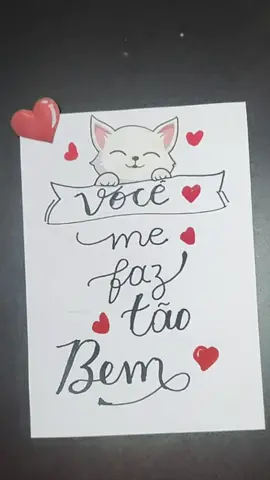 você
me
faz
tão
Bem